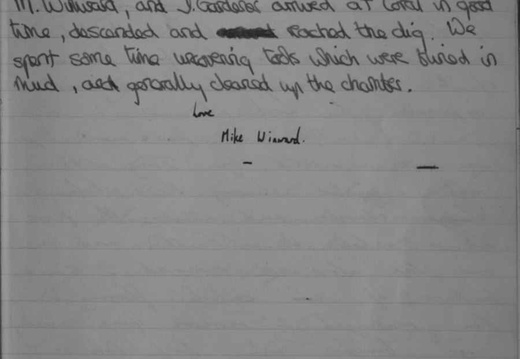 M. Winward, and J. Gardener arrived at Lord in good
time, descended and reached the dig. We
spent some time recovering tools which were buried in
mud, and generally cleared up the chamber.
Love
Mike Winward.